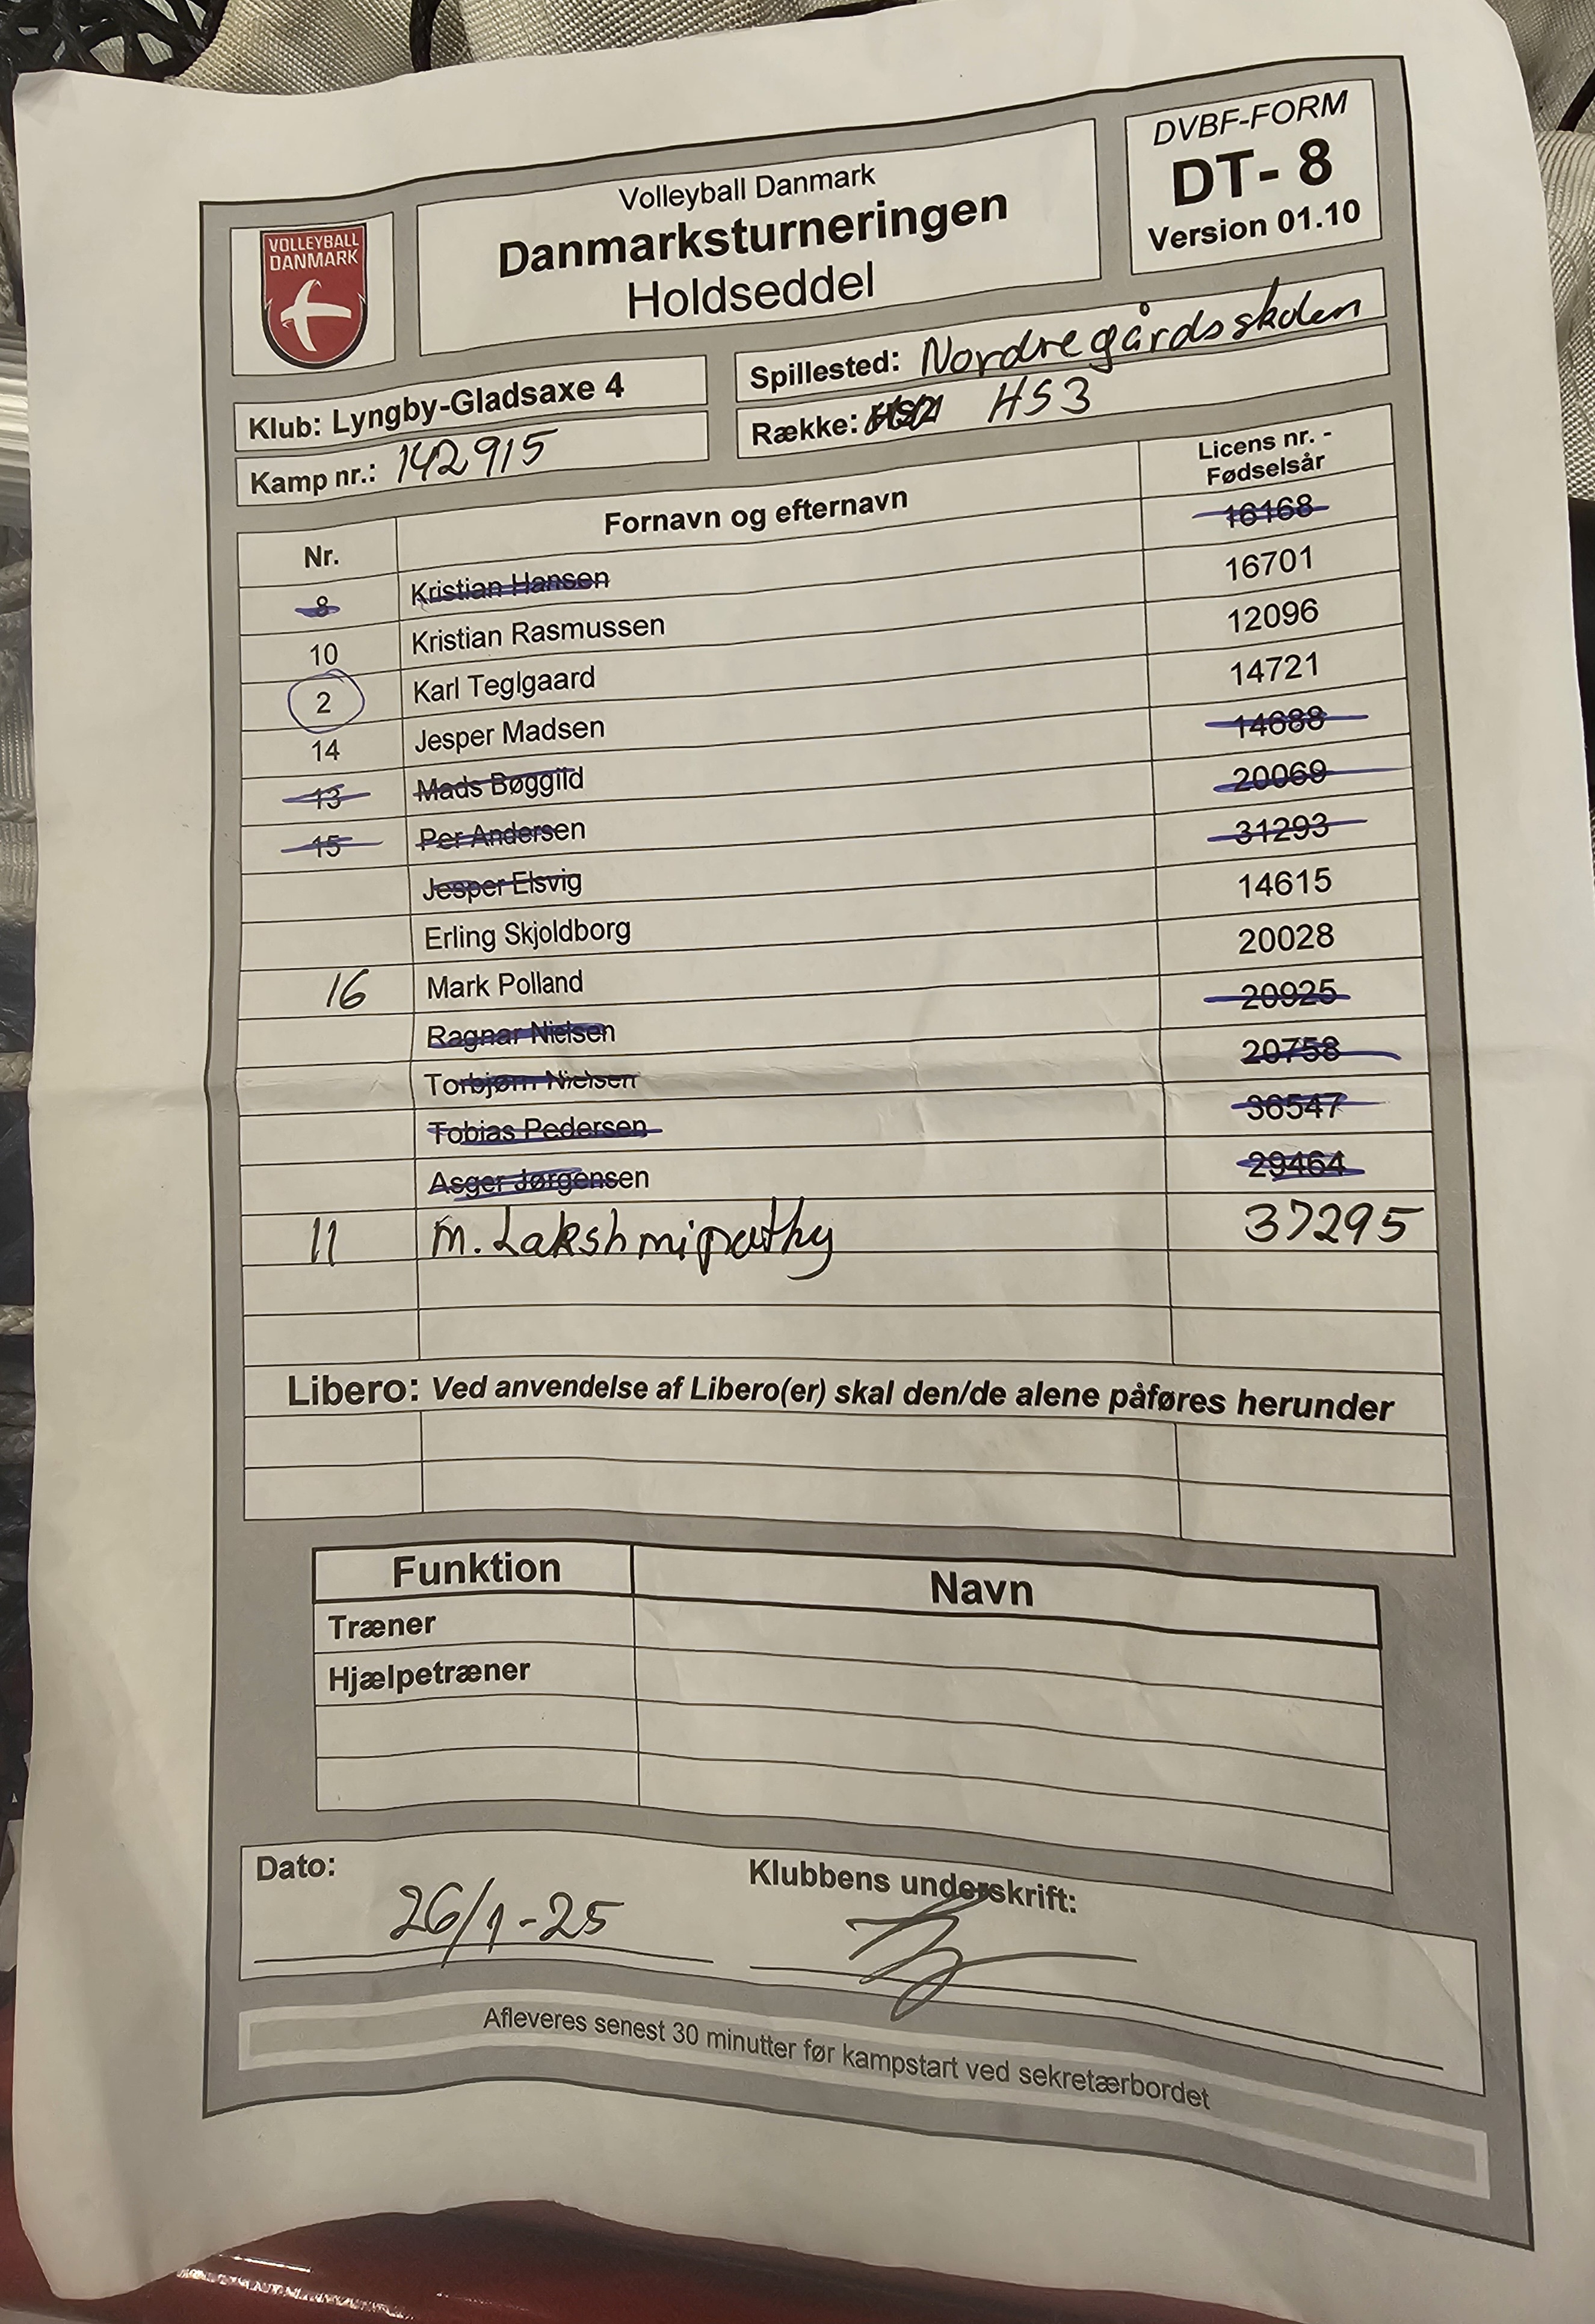 VOLLEYBALL
DANMARK
Volleyball Danmark
Danmarksturneringen
Holdseddel
DVBF-FORM
DT- 8
Version 01.10
Klub: Lyngby-Gladsaxe 4
Spillested: Nordregårdsskolen
Kamp nr.: 142915
Række: HS3
Nr. Fornavn og efternavn Licens nr. -
Fødselsår
8 Kristian Hansen 16168
10 Kristian Rasmussen 16701
2 Karl Teglgaard 12096
14 Jesper Madsen 14721
13 Mads Bøggild 14688
15 Per Andersen 20069
Jesper Elsvig 31293
Erling Skjoldborg 14615
16 Mark Polland 20028
Ragnar Nielsen 20925
Torbjørn Nielsen 20758
Tobias Pedersen 36547
Asger Jørgensen 29464
11 M. Lakshmipathy 37295
Libero: Ved anvendelse af Libero(er) skal den/de alene påføres herunder
Funktion Navn
Træner
Hjælpetræner
Dato: 26/1-25
Klubbens underskrift:
Afleveres senest 30 minutter før kampstart ved sekretærbordet